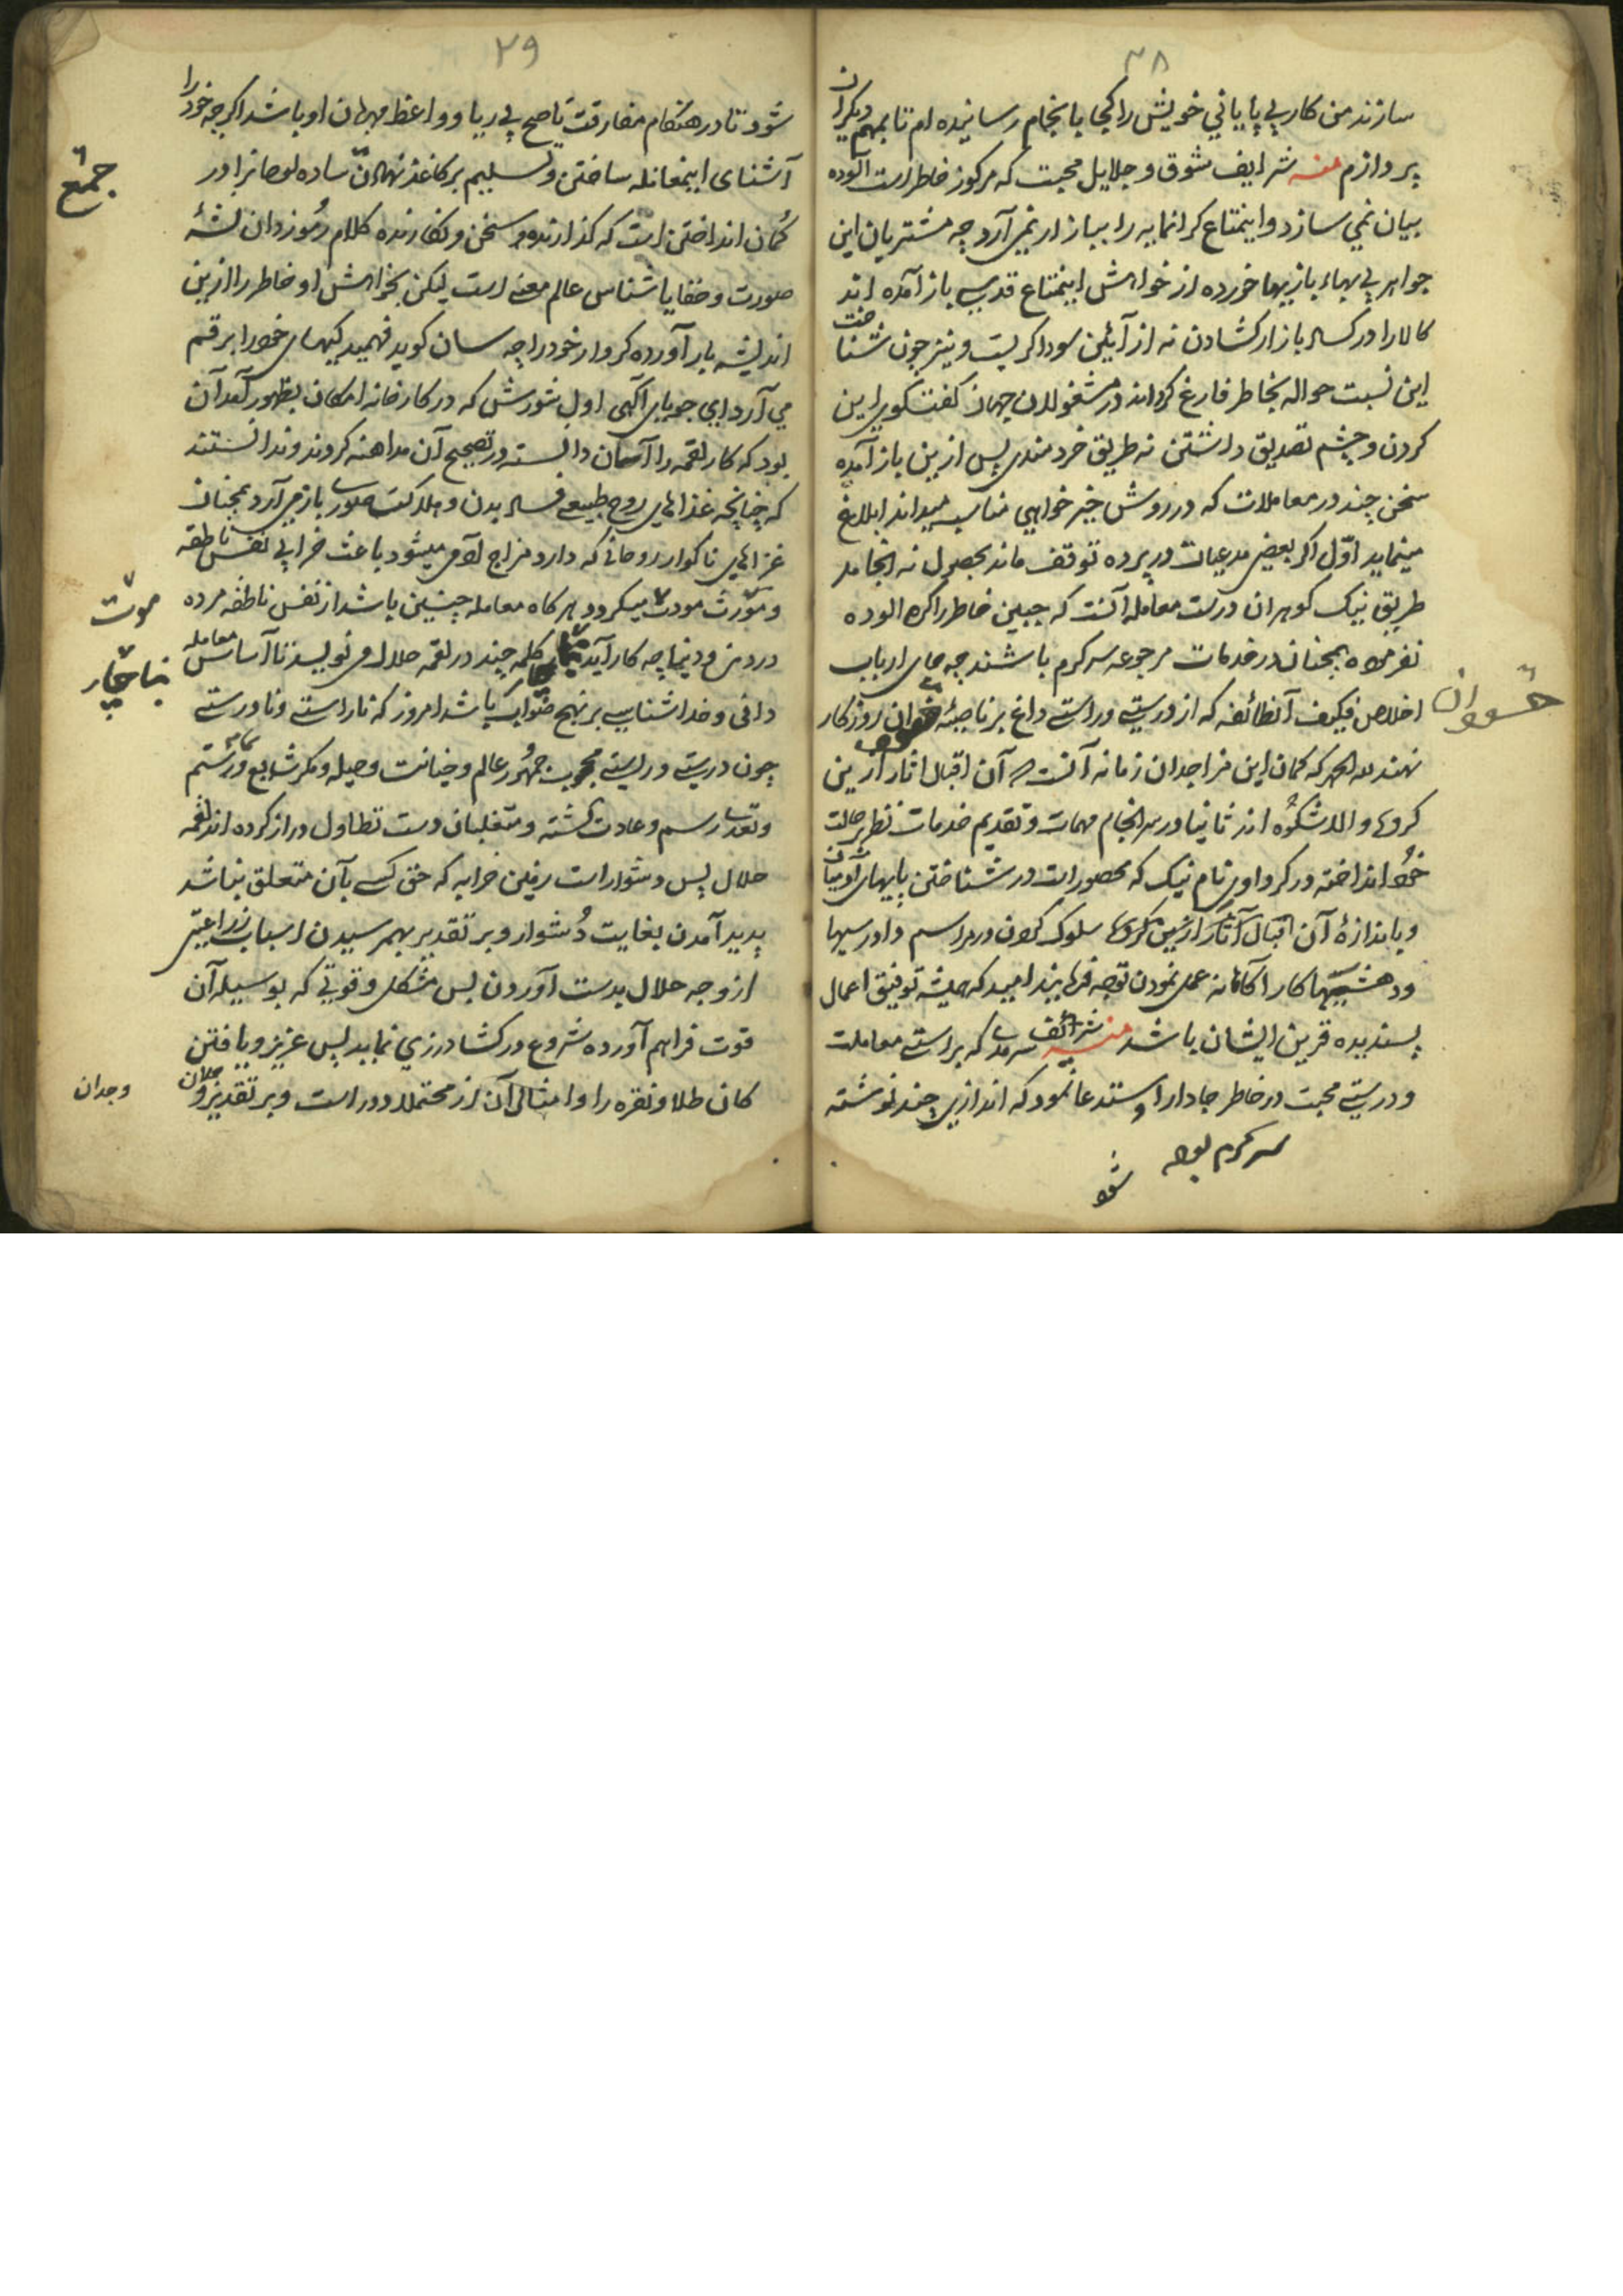 ۲۸
سازند من کار بی پایانی خویش را کجا بانجام رسانیده ام تا بمهم دیکران
پردازم منه شرایف شوق و جلایل محبت که مرکوز خاطر است آلوده
بیان نمی سازد و اینمتاع کرانمایه را ببازار نمی آرد چه مشتریان این
جواهر بی بهاء بازیها خورده از خواهش اینمتاع قدسی باز آمده اند
کالا را در کساد بازار کشادن نه از آیین سوداکریست و نیز چون شناخت
این نسبت حواله بخاطر فارغ کرده اند در مشغولان جهان کفتکوی این
کردن و چشم تصدیق داشتن نه طریق خردمندی پس ازین باز آمده
سخن چند در معاملات که در روش خیر خواهی مناسب میداند ابلاغ
مینماید اوّل اکر بعضی مدعیات در پرده توقف ماند بحصول نه انجامد
طریق نیک کوهران درست معامله آنست که جبین خاطر را کره آلوده
نفرموده همچنان در خدمات مرجوعه سرکرم باشند چه جای ارباب
اخلاص فکیف آنطائفه که از درستی و راستی داغ بر ناصیهٔ خسروان روزکار
خسروان
نهند لله الحمد که کمان این مزاجدان زمانه آنست که آن اقبال آثار ازین
کروه والا شکوه اند ثانیا در سرانجام مهمات و تقدیم خدمات نظر بر حالت
خود انداخته در کردآوری نام نیک که محصور است در شناختن پایهای آدمیان
و باندازهٔ آن اقبال آثار ازین کروه سلوک کردن و در مراسم دادرسیها
و دهشتیها کار آکاهانه عمل نمودن توجه فرمایند امید که همیشه توفیق اعمال
پسندیده قرین ایشان باشد منه شرائف سرمدی که براستی معاملت
و درستی محبت در خاطر جا دارد استدعا نمود که اندازی چند نوشته
سرکرم بوده
شود
۲۹
شود تا در هنکام مفارقت ناصح بی ریا و واعظ مهربان او باشد اکرچه خود را
آشنای اینمعامله ساختن و تسلیم بر کاغذ نهادن ساده لوحانرا در
جمع
کمان انداختن است که کذارنده سخن و نکارنده کلام رموزدان نشهٔ
صورت و خفایا شناس عالم معنی است لیکن بخواهش او خاطر را ازین
اندیشه باز آورده کردار خود را چه سان کوید فهمیدکیهای خود را برقم
می آرد ای جویای آکهی اول شورش که در کارخانه امکان بظهور آمد آن
بود که کار لقمه را آسان دانسته در تصحیح آن مداهنه کردند و ندانستند
که چنانچه غذاهای روح طبیعی فساد بدن و هلاکت صوری باز می آرد همچنان
غذاهای ناکوار روحانی که دارد مزاج آدمی میشود باعث خرابی نفس ناطقه
و مورث موت میکردد هرکاه معامله چنین باشد از نفس ناطقه مرده
موت
در دین و دنیا چه کار آید کلمه چند در لقمه حلال می نویسد تا اساس معامله
بناچار
دانی و خداشناسی بر نهج صواب باشد امروز که ناراستی و نادرستی
چون درستی و راستی محبوب جمهور عالم و خیانت و حیله و مکر شایع و ستم
و تعدی رسم و عادت کشته و متغلبان دست تطاول دراز کرده اند لقمه
حلال پس دشوار است زمین خرابه که حق کسی بآن متعلق نباشد
پدید آمدن بغایت دشوار و بر تقدیر بهم رسیدن اسباب زراعتی
از وجه حلال بدست آوردن بس مشکل و قوتی که بوسیله آن
قوت فراهم آورده شروع در کشاورزی نماید بس عزیز و یافتن
کان طلا و نقره را و امثال آن از محتملا دور است و بر تقدیر وجدان
وجدان